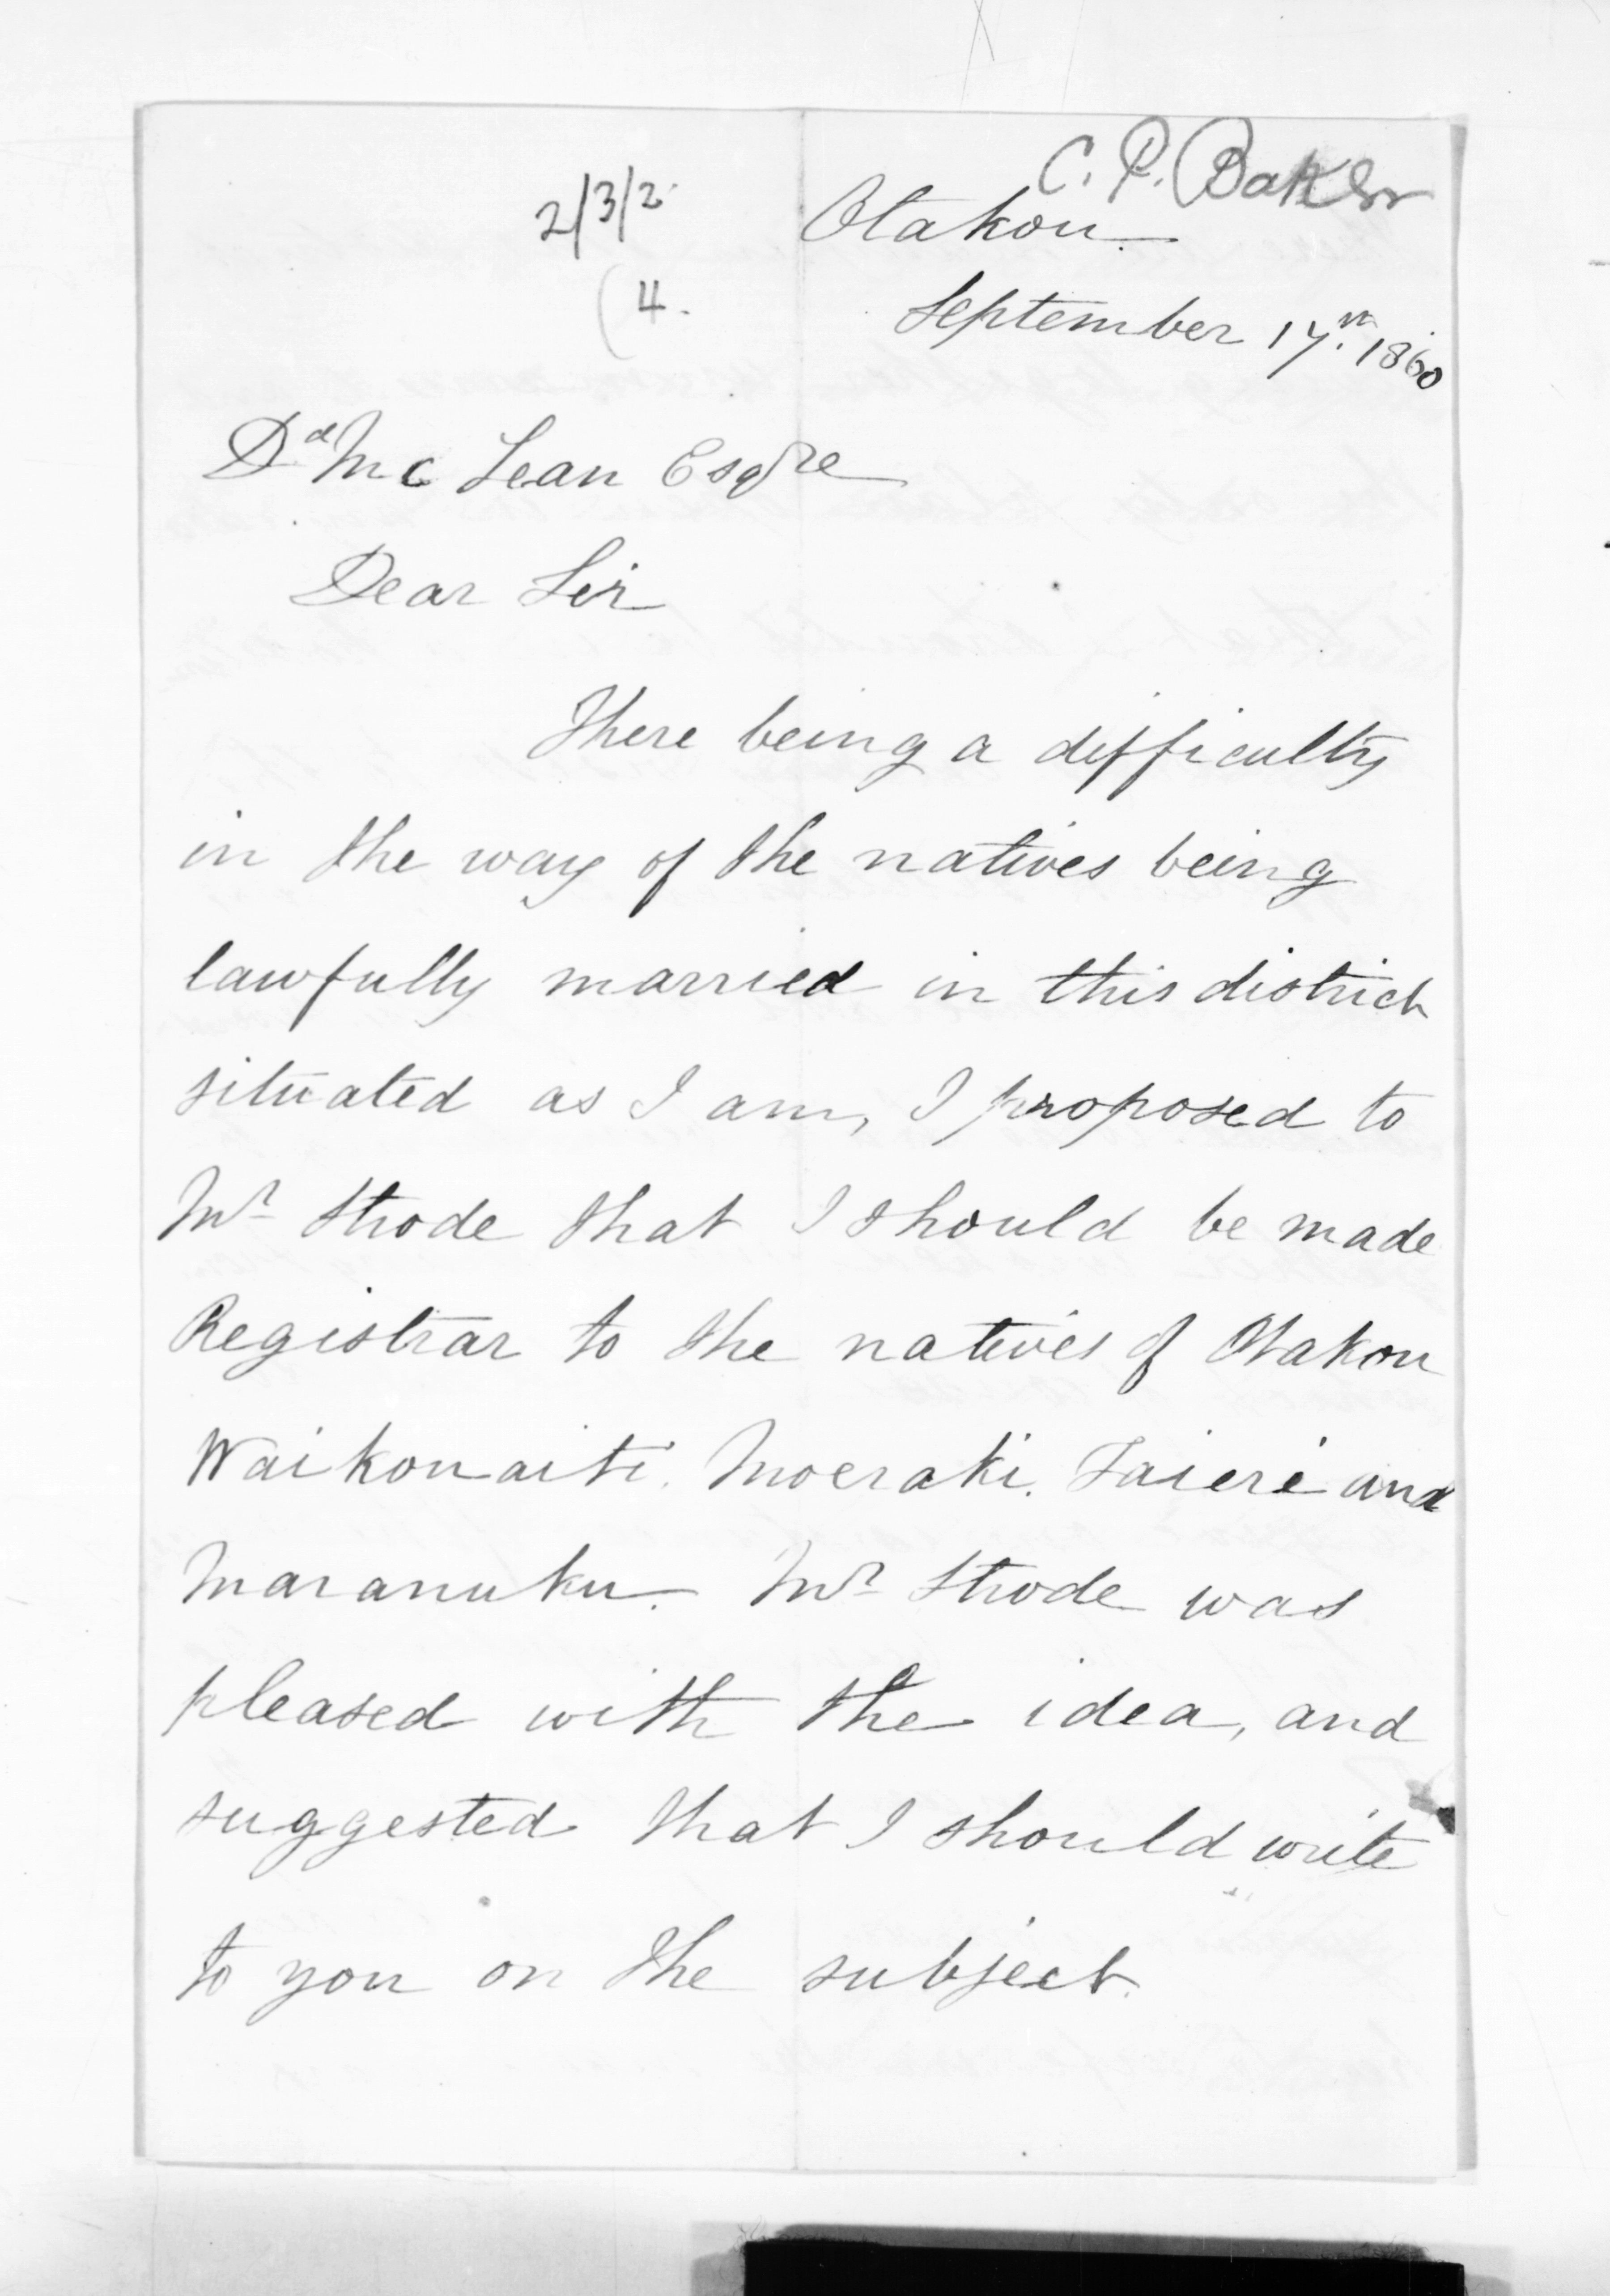 C. P. Baker
2/3/2
Otakou.
(4.
September 17th. 1860
Dd Mc Lean Esqre
Dear Sir
There being a difficulty
in the way of the natives being
lawfully married in this district
situated as I am, I proposed to
Mr Strode that I should be made
Registrar to the natives of Otakou
Waikouaiti. Moeraki. Taieri and
Maranuku. Mr Strode was
pleased with the idea, and
suggested that I should write
to you on the subject.